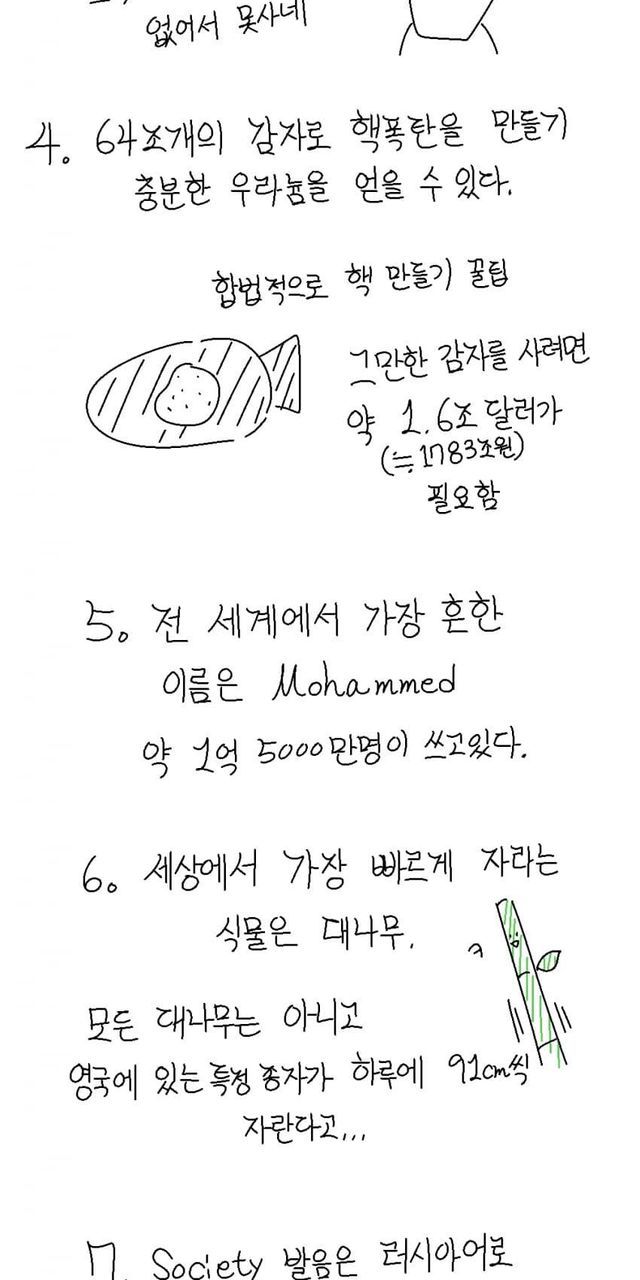 없어서 못사네
4. 64조개의 감자로 핵폭탄을 만들기
충분한 우라늄을 얻을 수 있다.
합법적으로 핵 만들기 꿀팁
그만한 감자를 사려면
약 1.6조 달러가
(≒1783조원)
필요함
5. 전 세계에서 가장 흔한
이름은 Mohammed
약 1억 5000만명이 쓰고있다.
6. 세상에서 가장 빠르게 자라는
식물은 대나무.
ㅋ
모든 대나무는 아니고
영국에 있는 특정 종자가 하루에 91cm씩
자란다고...
7. Society 발음은 러시아어로